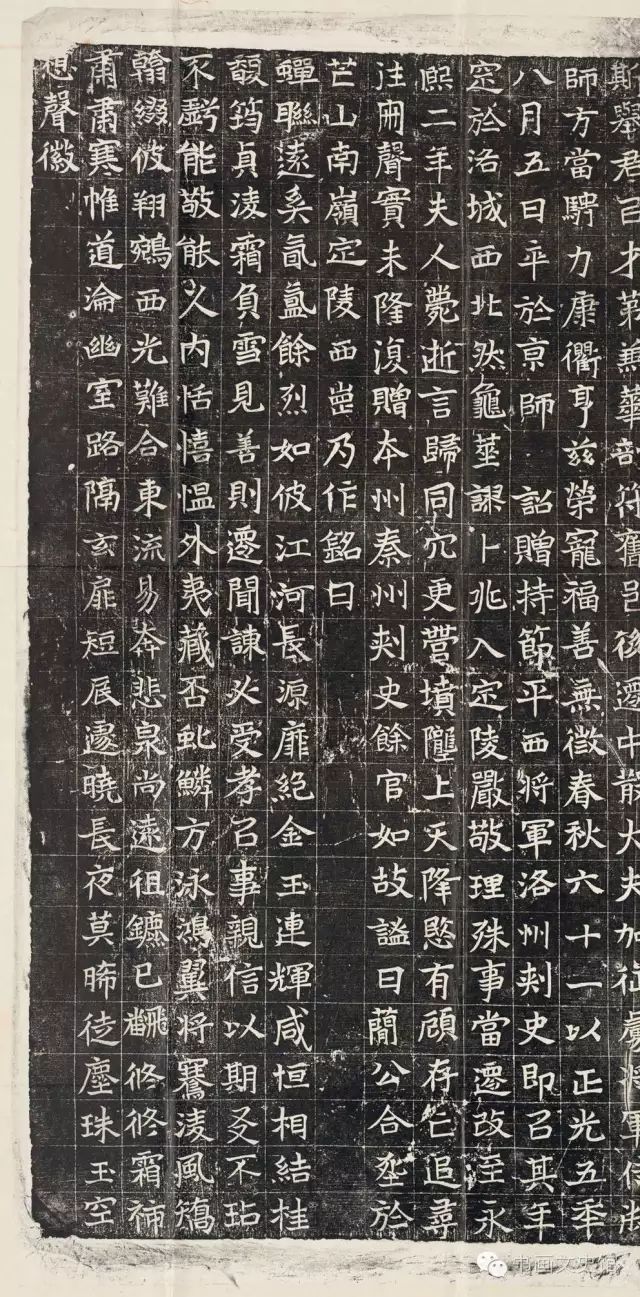 君百才無華符舊邑後遷中散大夫加征虜將軍
師方當騁力康衢亨兹榮寵福善無徵春秋六十一以正光五年
八月五日卒於京師 詔贈持節平西將軍洛州刾史即召其年
窆於洛城西北然龜莁謀卜兆入定陵嚴敬理殊事當遷改至永
熙二年夫人薨逝言歸同穴更營墳隴上天降愍有顧存亡追尋
往冊聲實未隆復贈本州秦州刾史餘官如故謚曰蕳公合塟於
芒山南嶺定陵西崗乃作銘曰
蟬聯遠系氤氳餘烈如彼江河長源靡絕金玉連輝咸恒相結桂
馥筠貞淩霜負雪見善則遷聞諫必受孝召事親信以期友不玷
不虧能敬能久內恬憘慍外夷藏否虬鱗方泳鴻翼將騫淩風矯
翰綴彼翔鵷西光難合東流易奔悲泉尚遠徂鑣已飜修修霜柿
肅肅寒帷道淪幽室路隔玄扉短辰遽曉長夜莫晞徒塵珠玉空
想聲徽